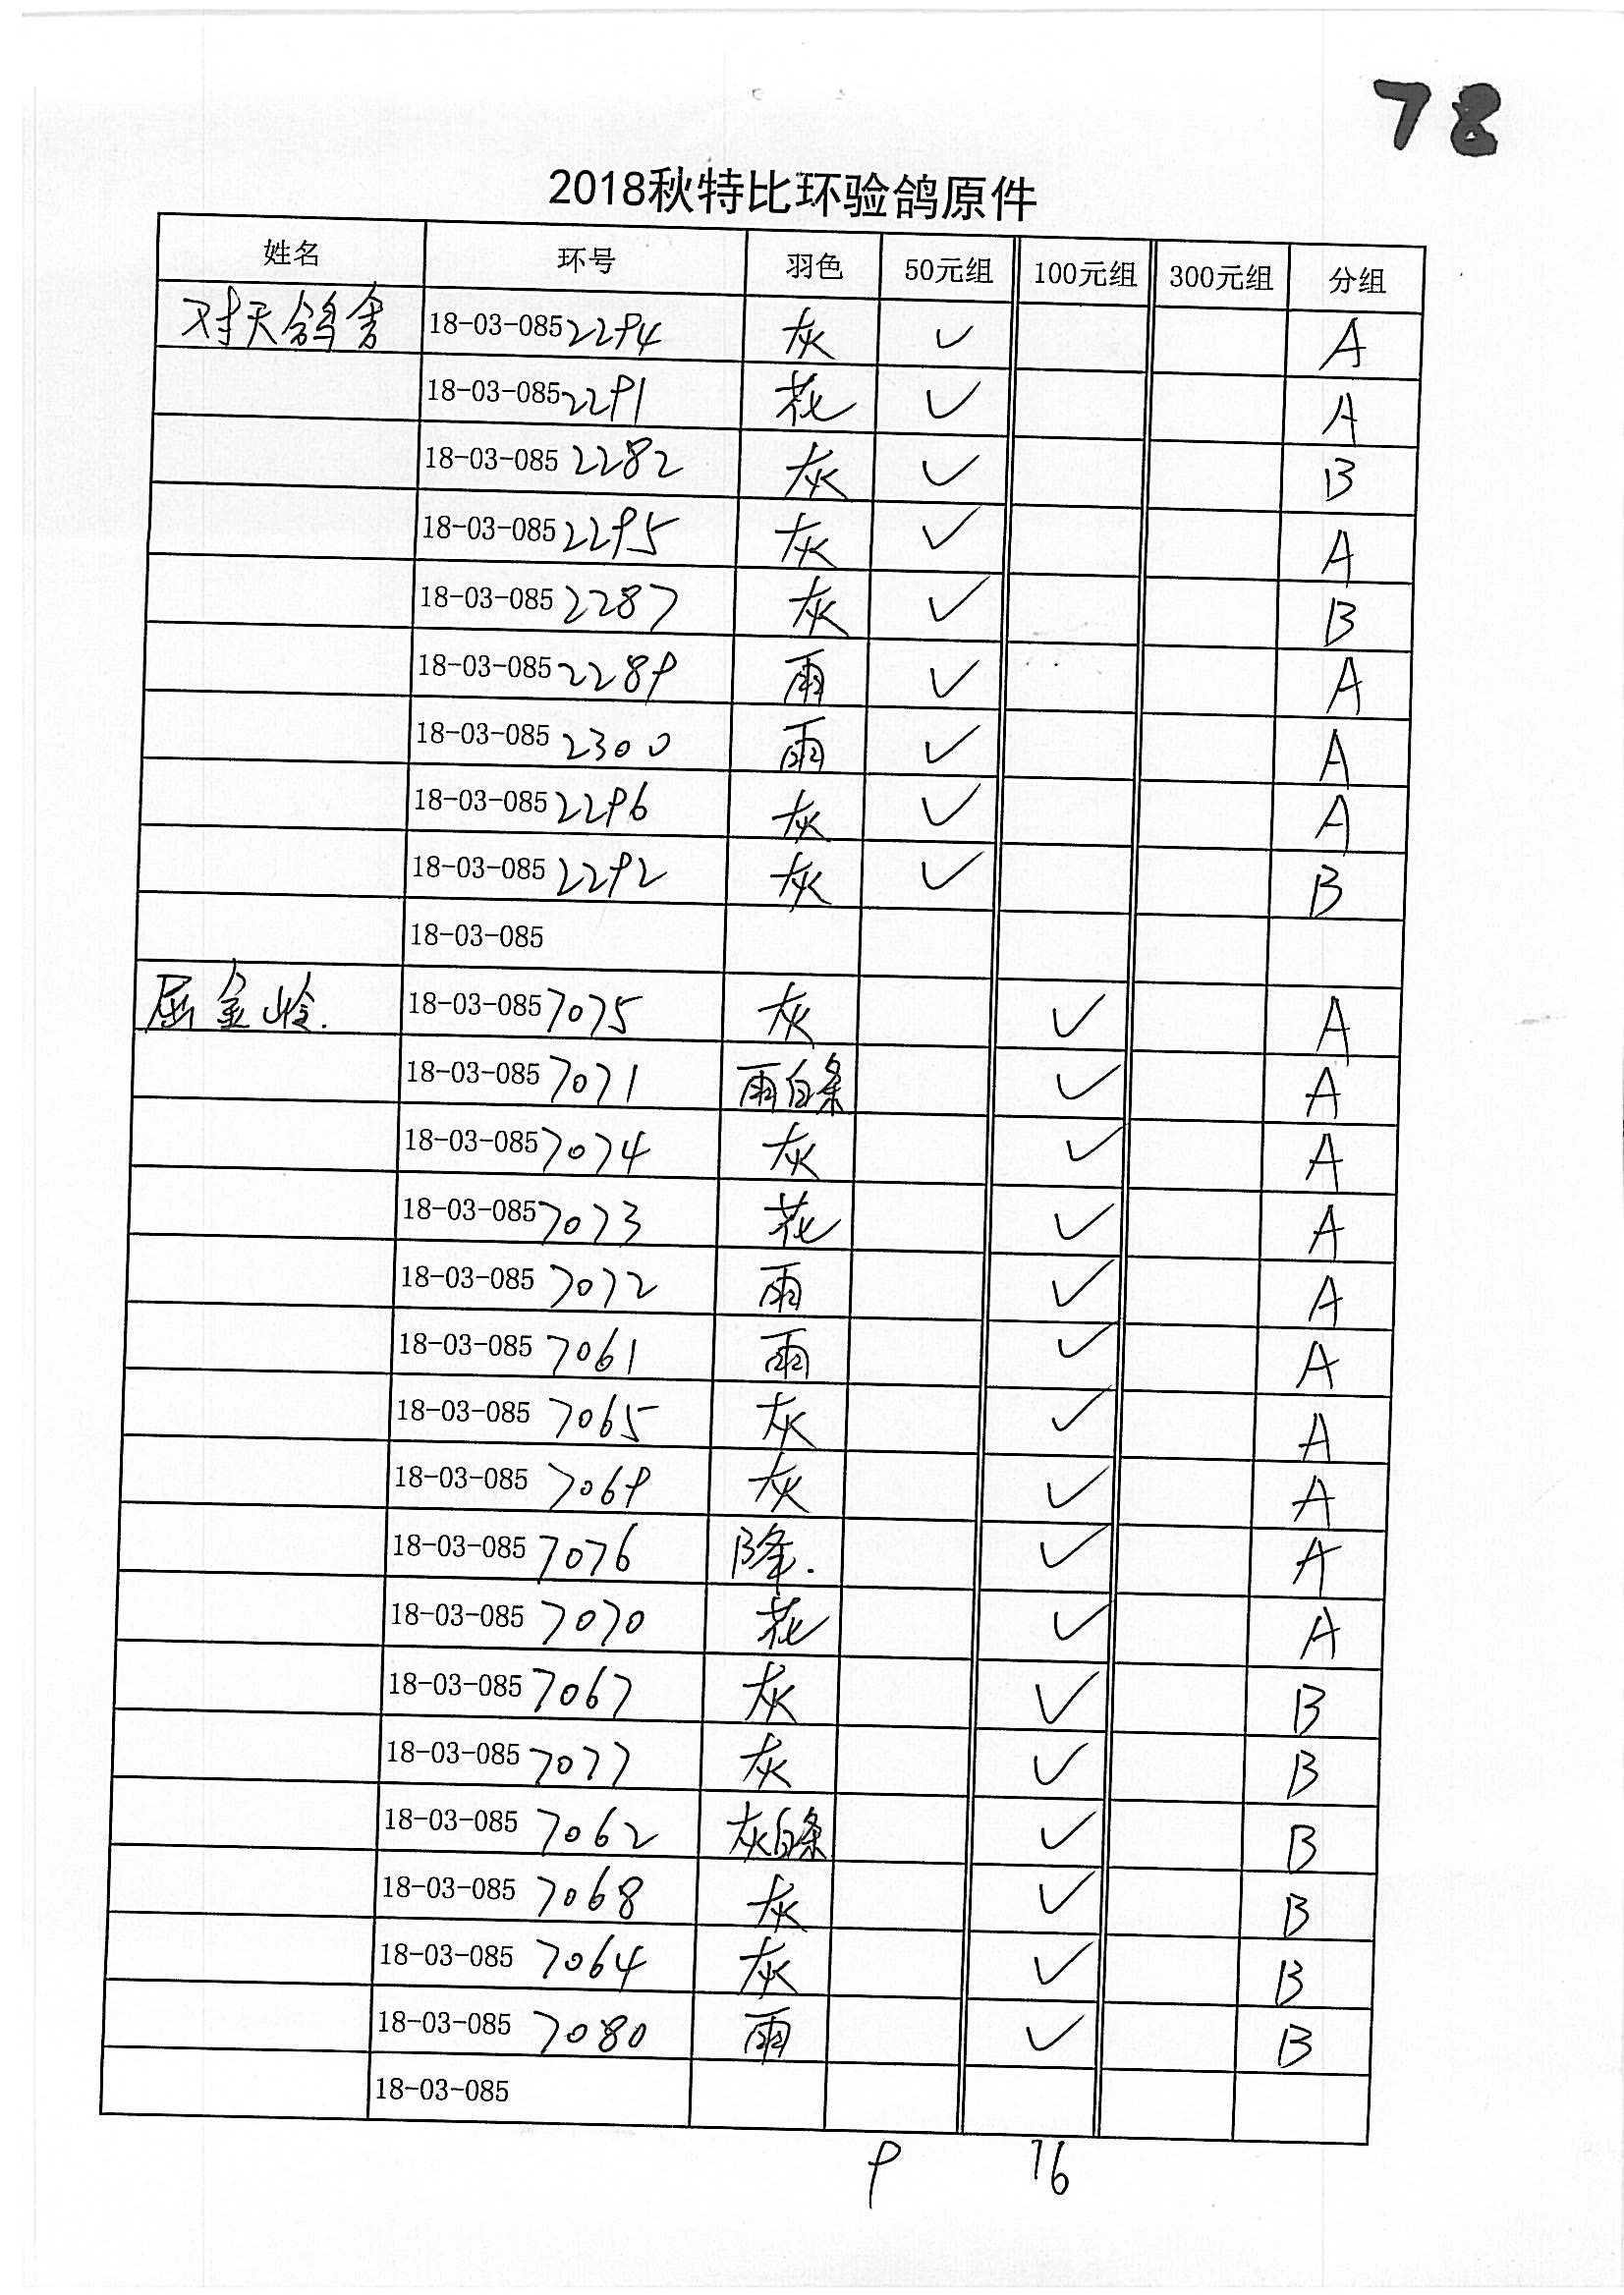 78
2018秋特比环验鸽原件
姓名 环号 羽色 50元组 100元组 300元组 分组
对天鸽舍 18-03-0852294 灰 ✓ A
18-03-0852291 花 ✓ A
18-03-0852282 灰 ✓ B
18-03-0852295 灰 ✓ A
18-03-0852287 灰 ✓ B
18-03-0852289 雨 ✓ A
18-03-0852300 雨 ✓ A
18-03-0852296 灰 ✓ A
18-03-0852292 灰 ✓ B
18-03-085
屈金岭. 18-03-0857075 灰 ✓ A
18-03-0857071 雨白条 ✓ A
18-03-0857074 灰 ✓ A
18-03-0857073 花 ✓ A
18-03-0857072 雨 ✓ A
18-03-0857061 雨 ✓ A
18-03-0857065 灰 ✓ A
18-03-0857069 灰 ✓ A
18-03-0857076 降. ✓ A
18-03-0857070 花 ✓ A
18-03-0857067 灰 ✓ B
18-03-0857077 灰 ✓ B
18-03-0857062 灰白条 ✓ B
18-03-0857068 灰 ✓ B
18-03-0857064 灰 ✓ B
18-03-0857080 雨 ✓ B
18-03-085
9 16